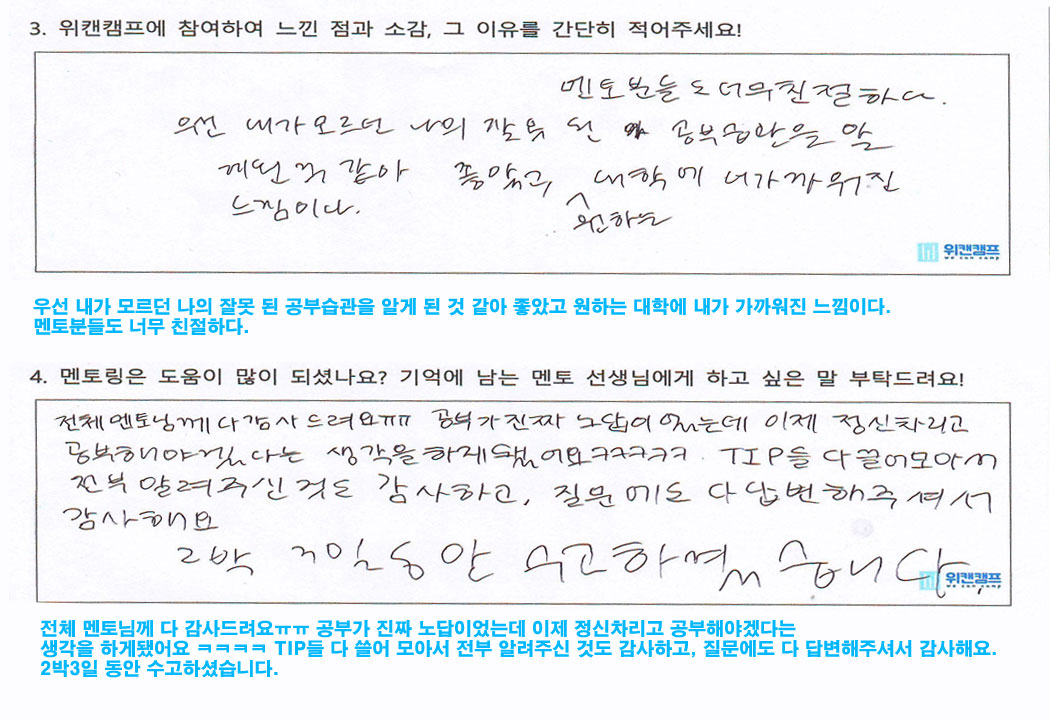 3. 위캔캠프에 참여하여 느낀 점과 소감, 그 이유를 간단히 적어주세요!
멘토분들도 너무친절하다.
우선 내가모르던 나의 잘못 된 공부습관을 알
게된 것 같아 좋았고, 대학에 내가까워진
느낌이다. 원하는
위캔캠프
we can camp
우선 내가 모르던 나의 잘못 된 공부습관을 알게 된 것 같아 좋았고 원하는 대학에 내가 가까워진 느낌이다.
멘토분들도 너무 친절하다.
4. 멘토링은 도움이 많이 되셨나요? 기억에 남는 멘토 선생님에게 하고 싶은 말 부탁드려요!
전체멘토님께 다감사드려요ㅠㅠ 공부가진짜 노답이었는데 이제 정신차리고
공부해야겠다는 생각을하게됐어요ㅋㅋㅋㅋㅋ. TIP들 다끌어모아서
전부 알려주신것도 감사하고, 질문에도 다답변해주셔서
감사해요
2박 3일동안 수고하셨습니다.
위캔캠프
we can camp
전체 멘토님께 다 감사드려요ㅠㅠ 공부가 진짜 노답이었는데 이제 정신차리고 공부해야겠다는
생각을 하게됐어요 ㅋㅋㅋㅋ TIP들 다 쓸어 모아서 전부 알려주신 것도 감사하고, 질문에도 다 답변해주셔서 감사해요.
2박3일 동안 수고하셨습니다.